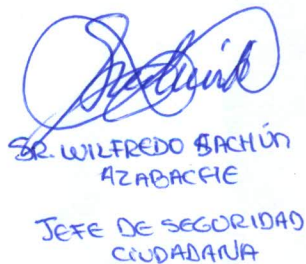 SR. WILFREDO BACHÚN
AZABACHE
JEFE DE SEGURIDAD
CIUDADANA